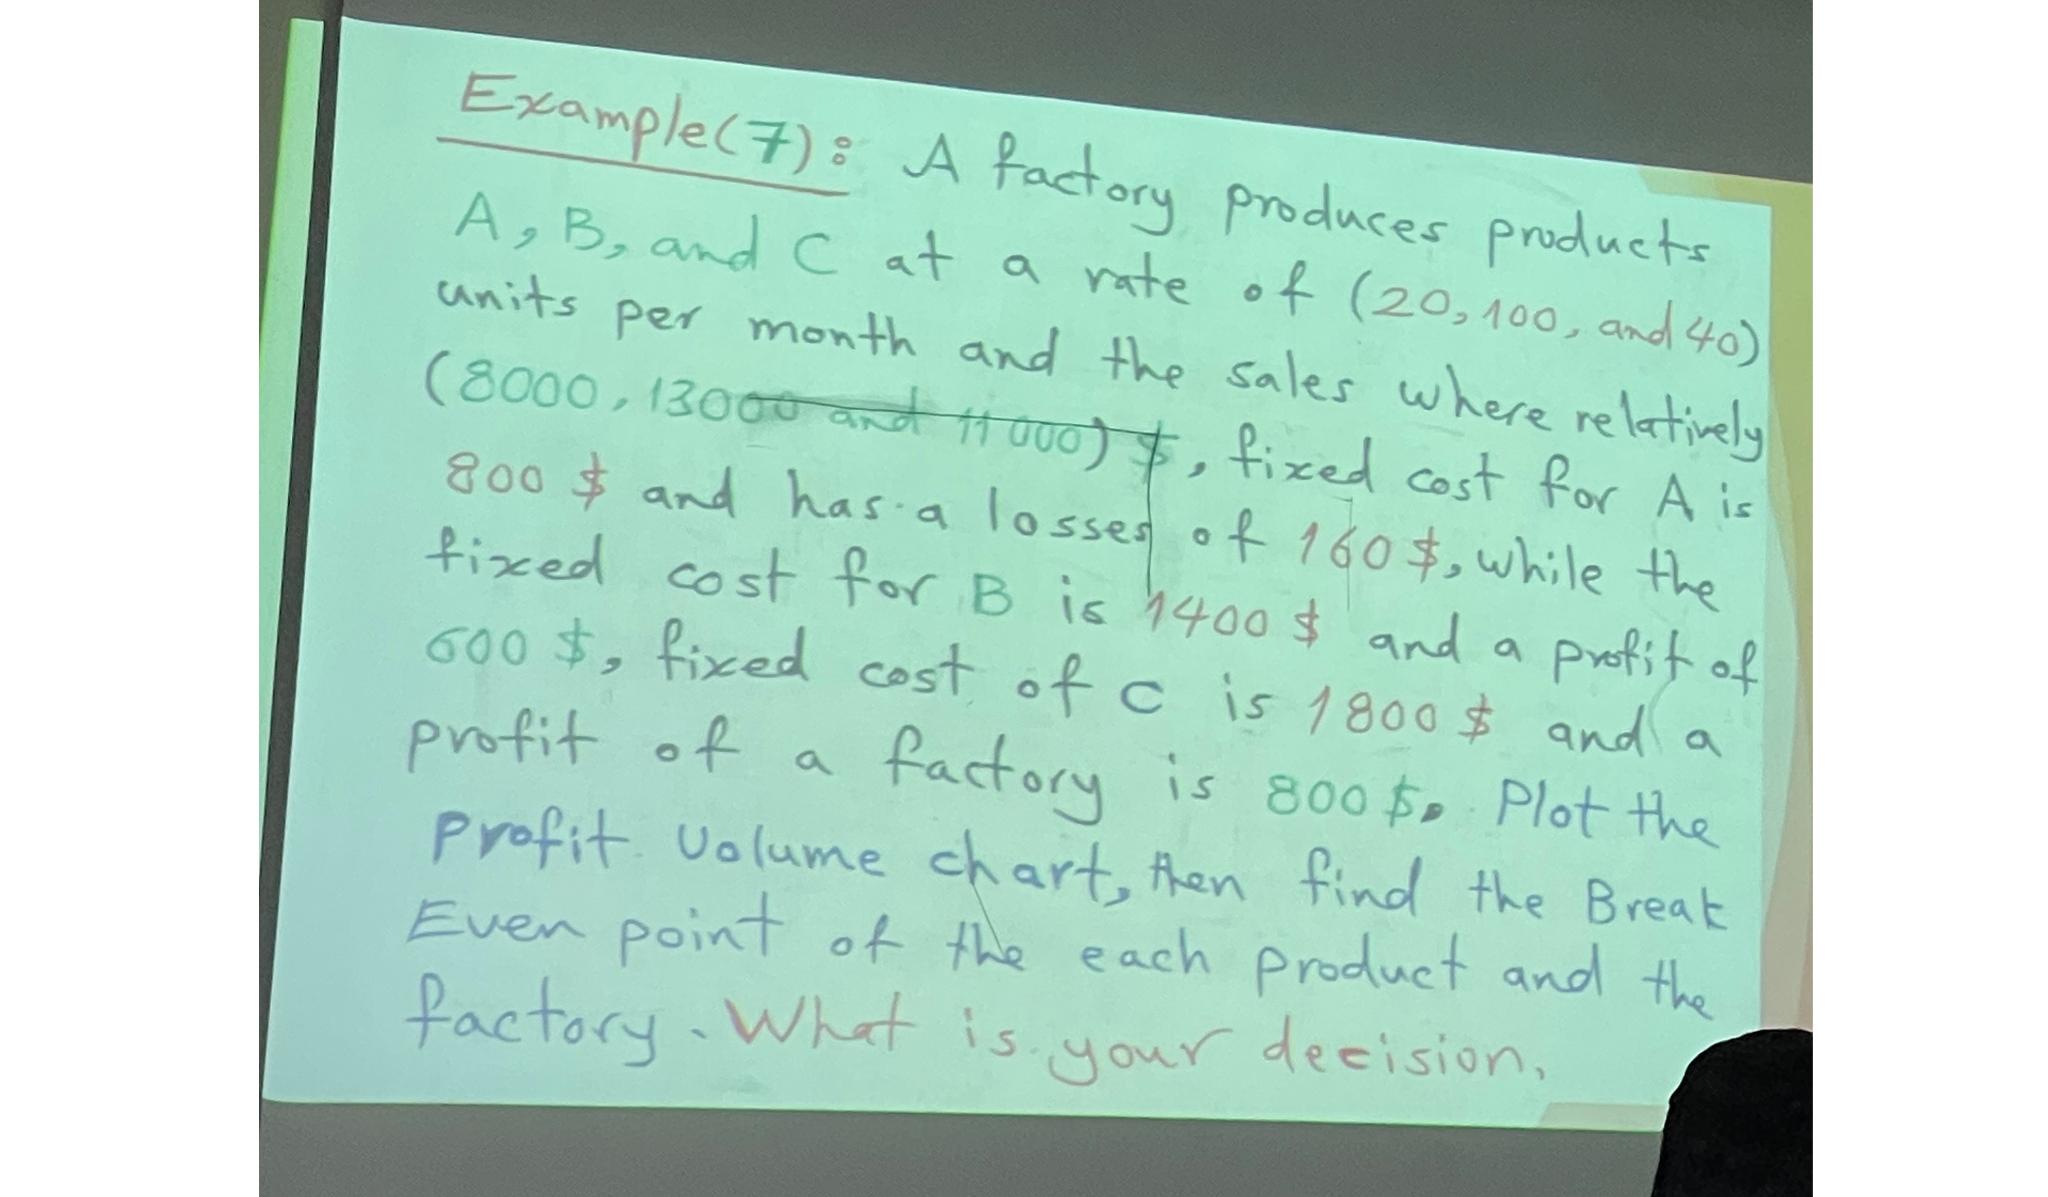 Example(7): A factory produces products
A, B, and C at a rate of (20, 100, and 40)
units per month and the sales where relatively
(8000, 13000 and 11000) $, fixed cost for A is
800 $ and has a losses of 160 $, while the
fixed cost for B is 1400 $ and a profit of
600 $, fixed cost of C is 1800 $ and a
profit of a factory is 800 $. Plot the
profit volume chart, then find the Break
Even point of the each product and the
factory. What is your decision.